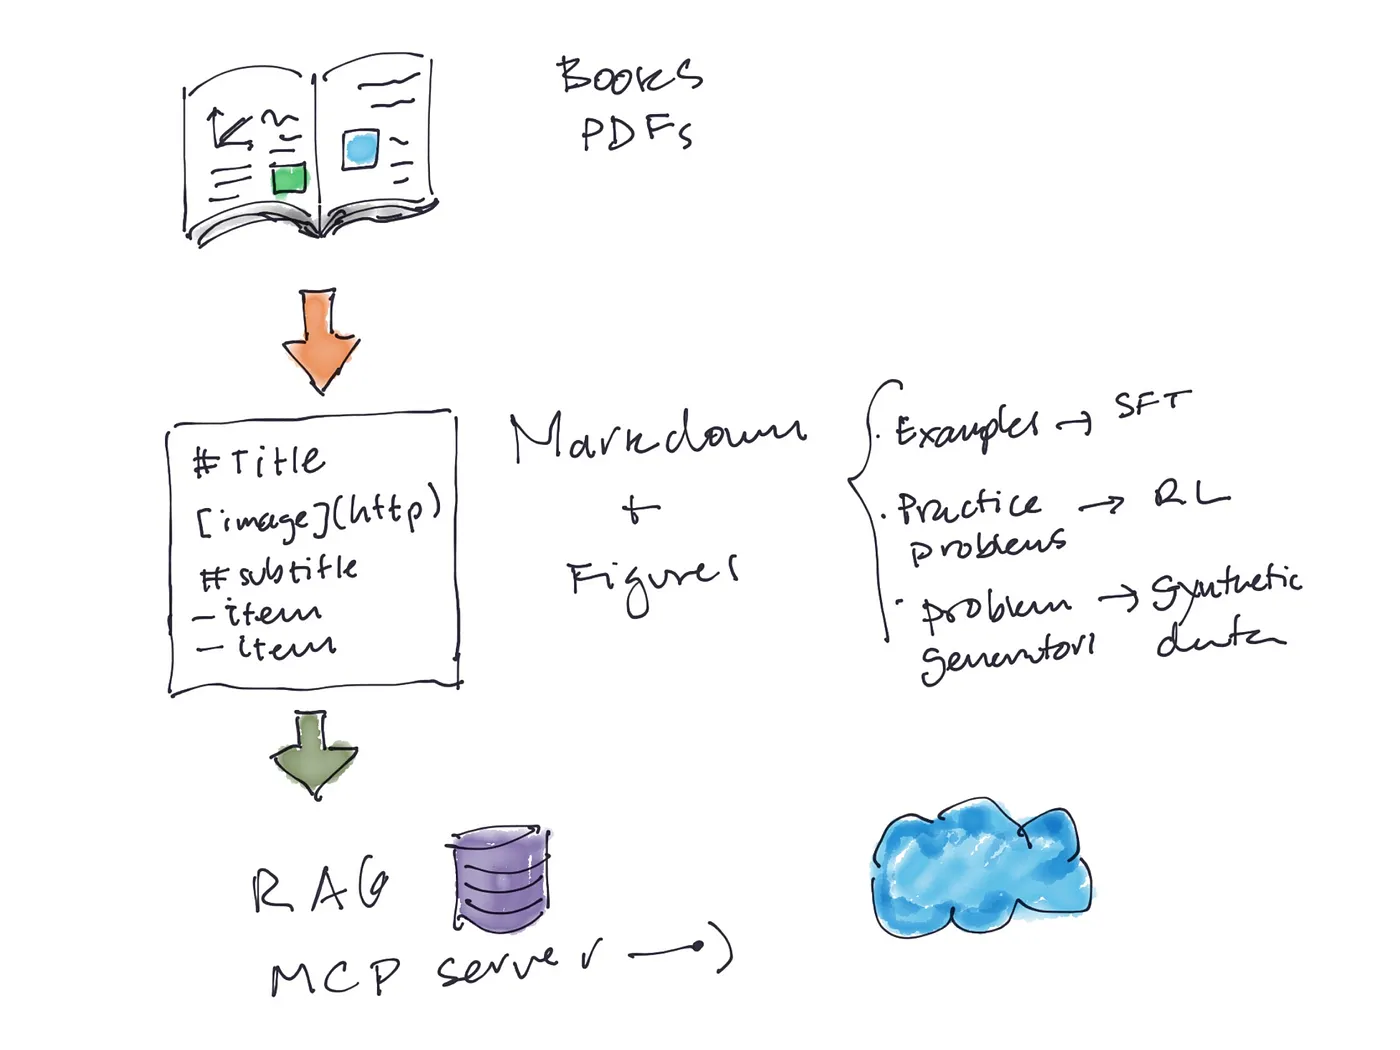 Books
PDFs
# Title
[image](http)
# subtitle
- item
- item
Markdown
+
Figures
· Examples → SFT
· Practice → RL
problems
· problem → synthetic
generators data
RAG
MCP server